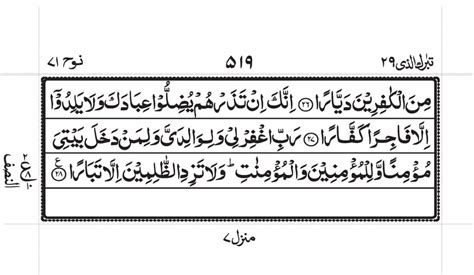 تبٰرك الذی ۲۹ ۵۱۹ نوح ۷۱
مِنَ الْكٰفِرِيْنَ دَيَّارًا ﴿۲۶﴾ اِنَّكَ اِنْ تَذَرْهُمْ يُضِلُّوْا عِبَادَكَ وَلَا يَلِدُوْۤا
اِلَّا فَاجِرًا كَفَّارًا ﴿۲۷﴾ رَبِّ اغْفِرْ لِيْ وَلِوَالِدَيَّ وَلِمَنْ دَخَلَ بَيْتِيَ
مُؤْمِنًا وَّلِلْمُؤْمِنِيْنَ وَالْمُؤْمِنٰتِ ؕ وَلَا تَزِدِ الظّٰلِمِيْنَ اِلَّا تَبَارًا ﴿۲۸﴾ ع
النصف
منزل ۷